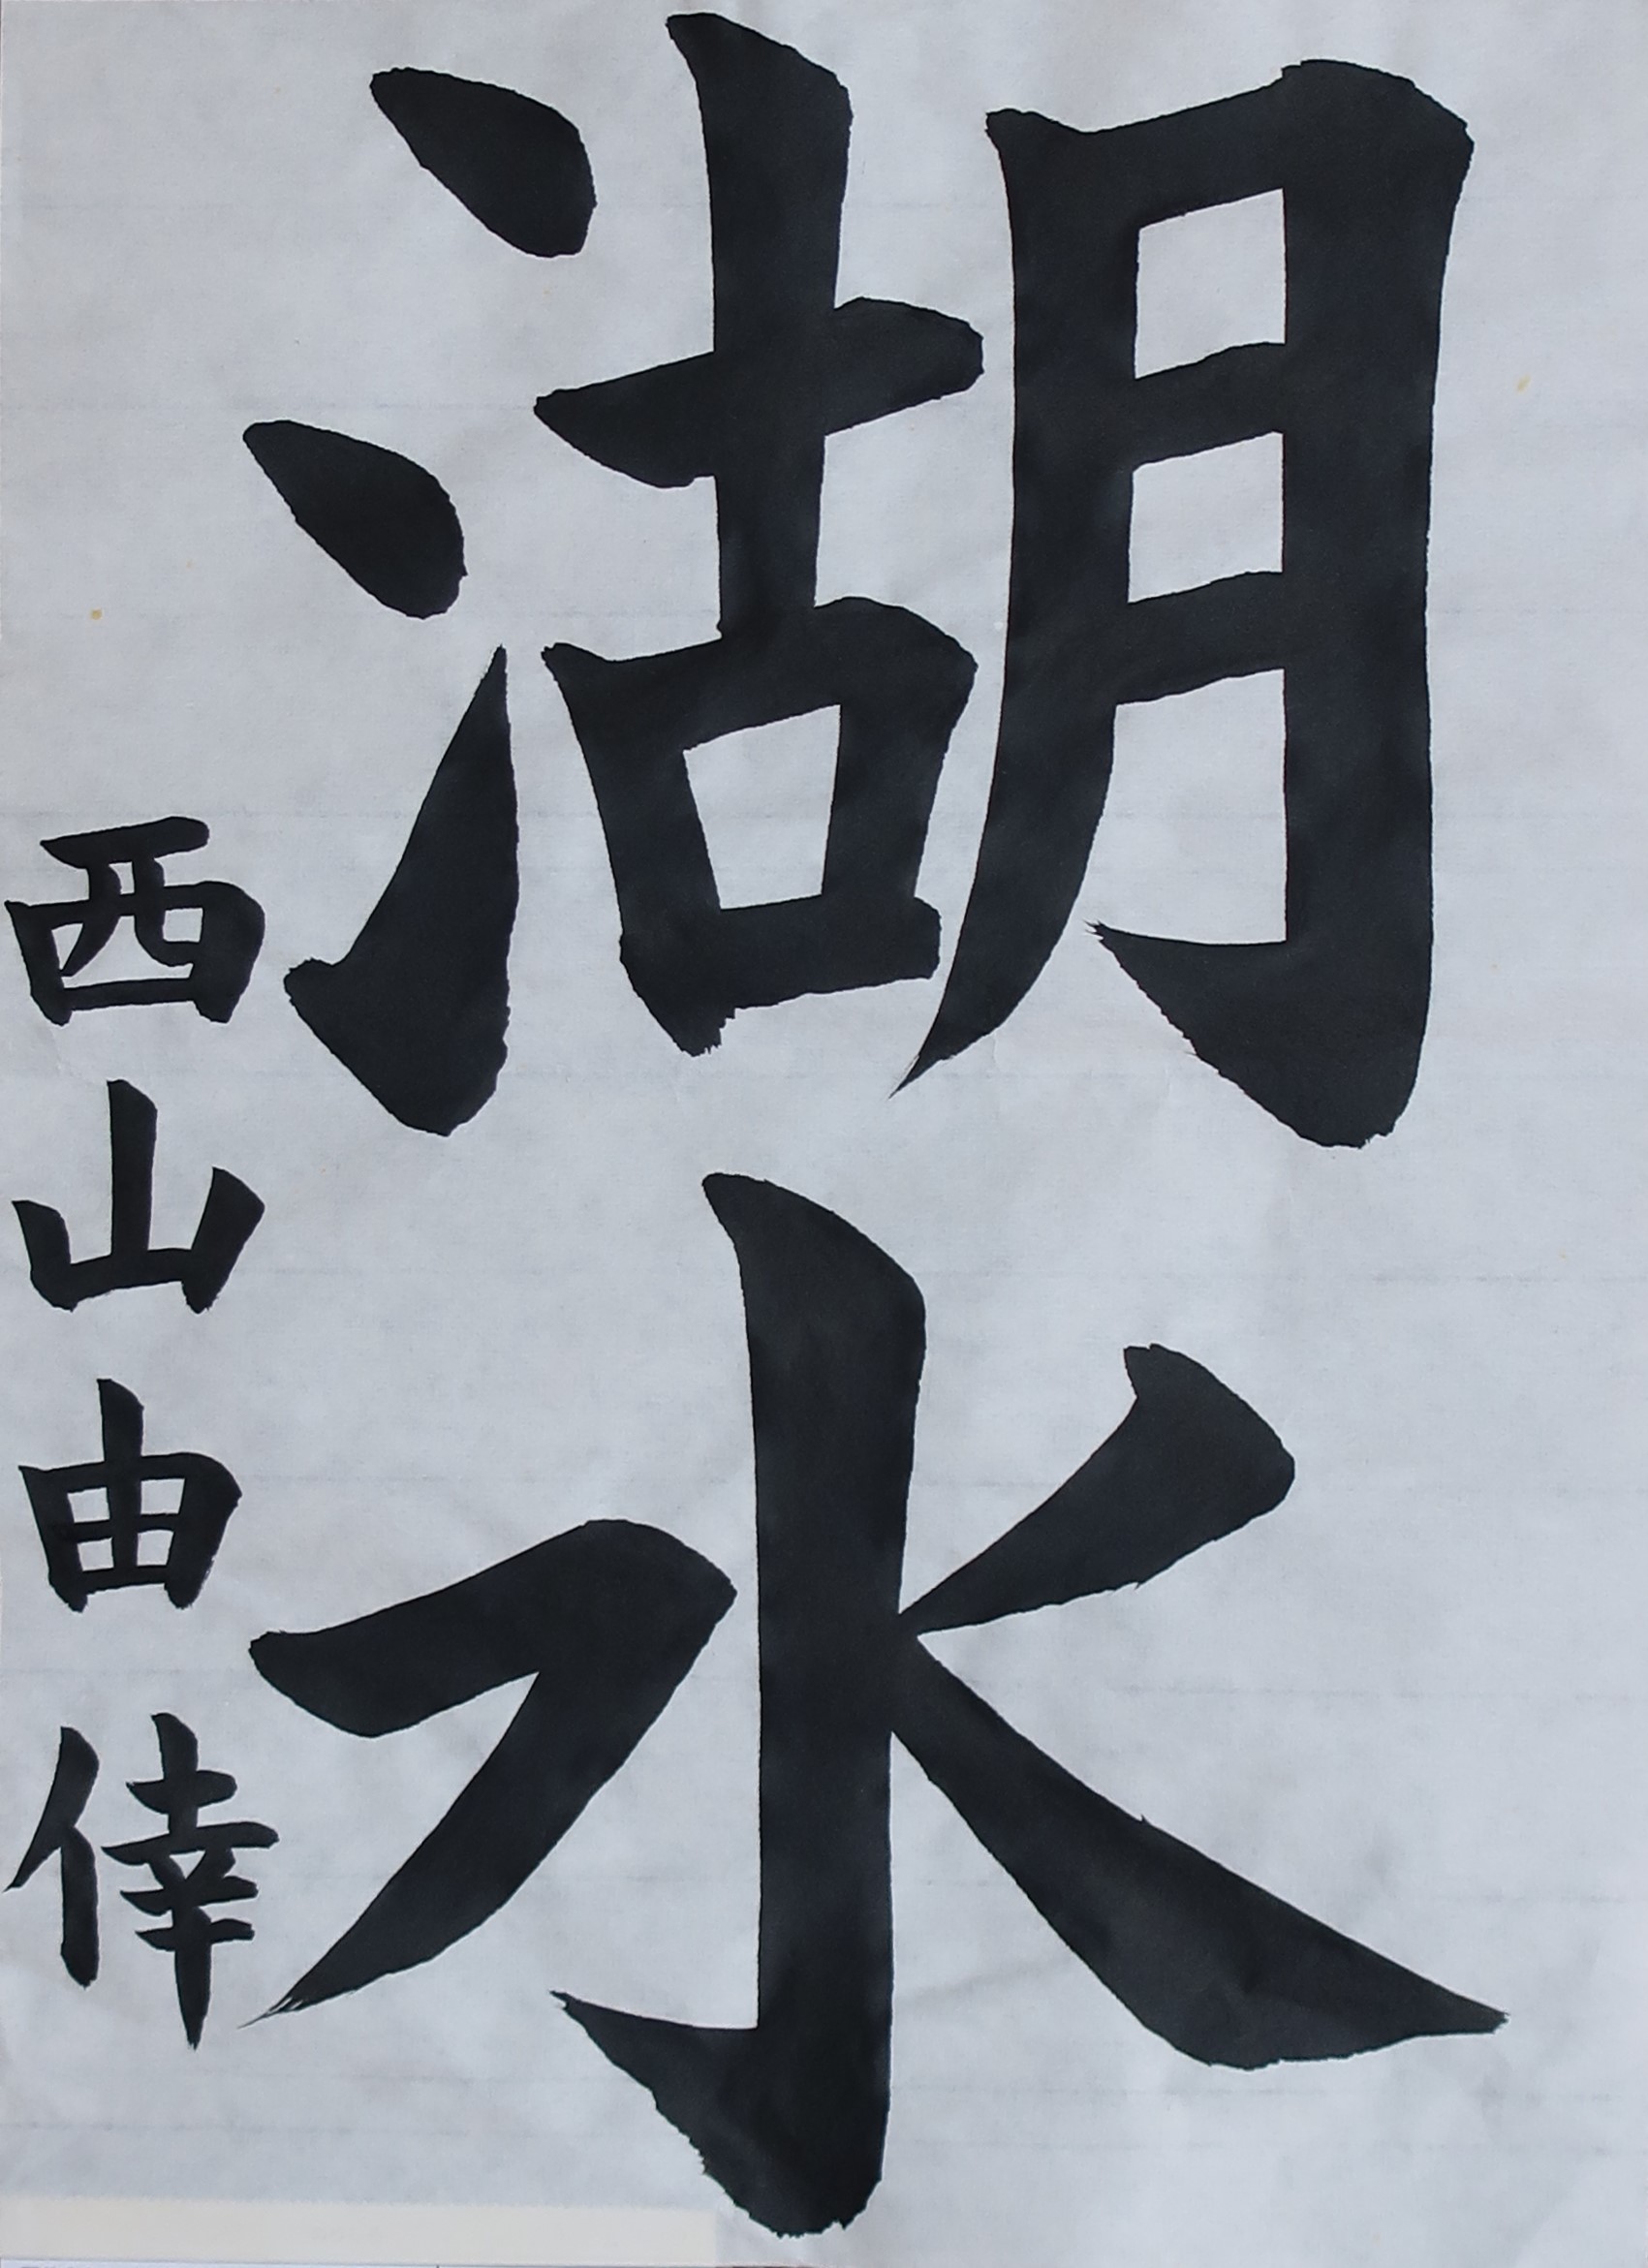 湖水
西山由倖